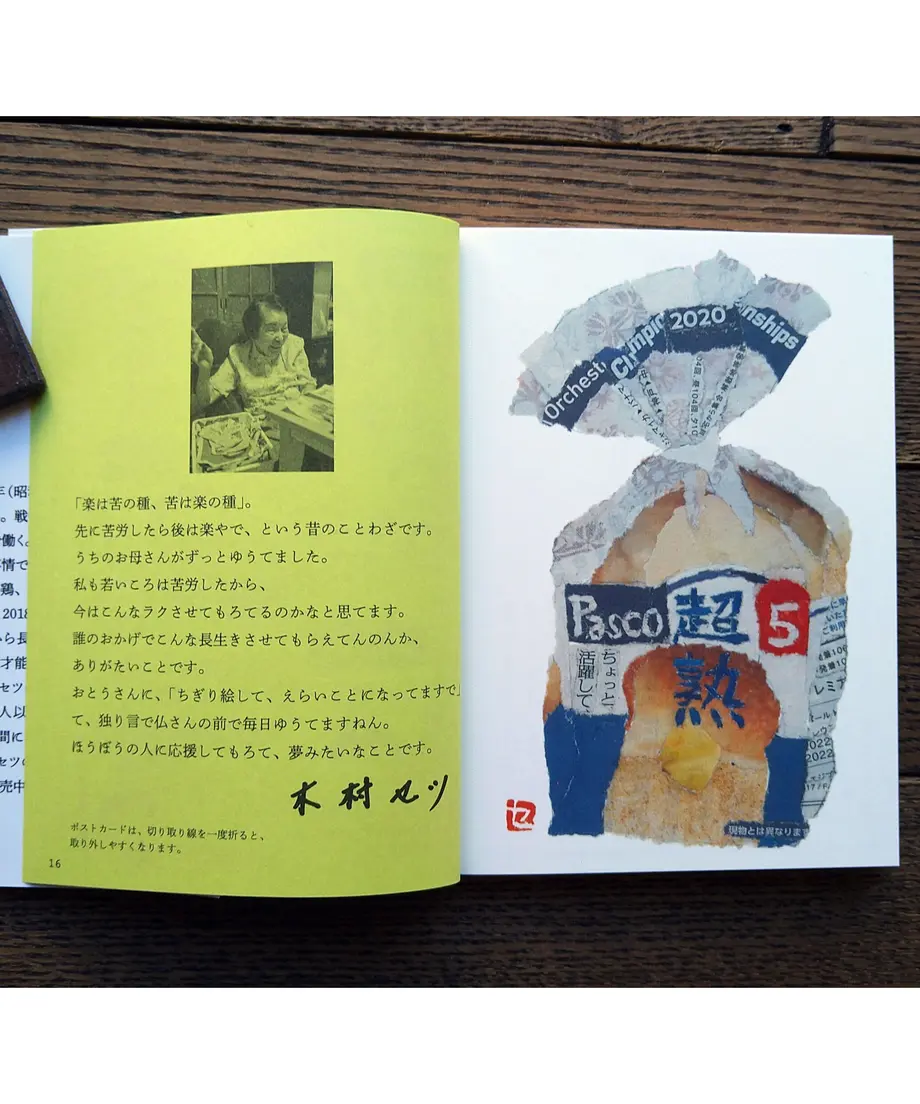 年(昭
。戦
働く。
事情で
鶏、
2018
から長
才能
セツ
人以
間に
セツの
売中
「楽は苦の種、苦は楽の種」。
先に苦労したら後は楽やで、という昔のことわざです。
うちのお母さんがずっとゆうてました。
私も若いころは苦労したから、
今はこんなラクさせてもろてるのかなと思てます。
誰のおかげでこんな長生きさせてもらえてんのんか、
ありがたいことです。
おとうさんに、「ちぎり絵して、えらいことになってますで」
て、独り言で仏さんの前で毎日ゆうてますねん。
ほうぼうの人に応援してもろて、夢みたいなことです。
木村セツ
ポストカードは、切り取り線を一度折ると、
取り外しやすくなります。
16
Orchestr
Ch
mpi
2020
nships
Pasco
超熟
5
ちょっと
活躍して
レミ
2022
2022
現物とは異なります
セ